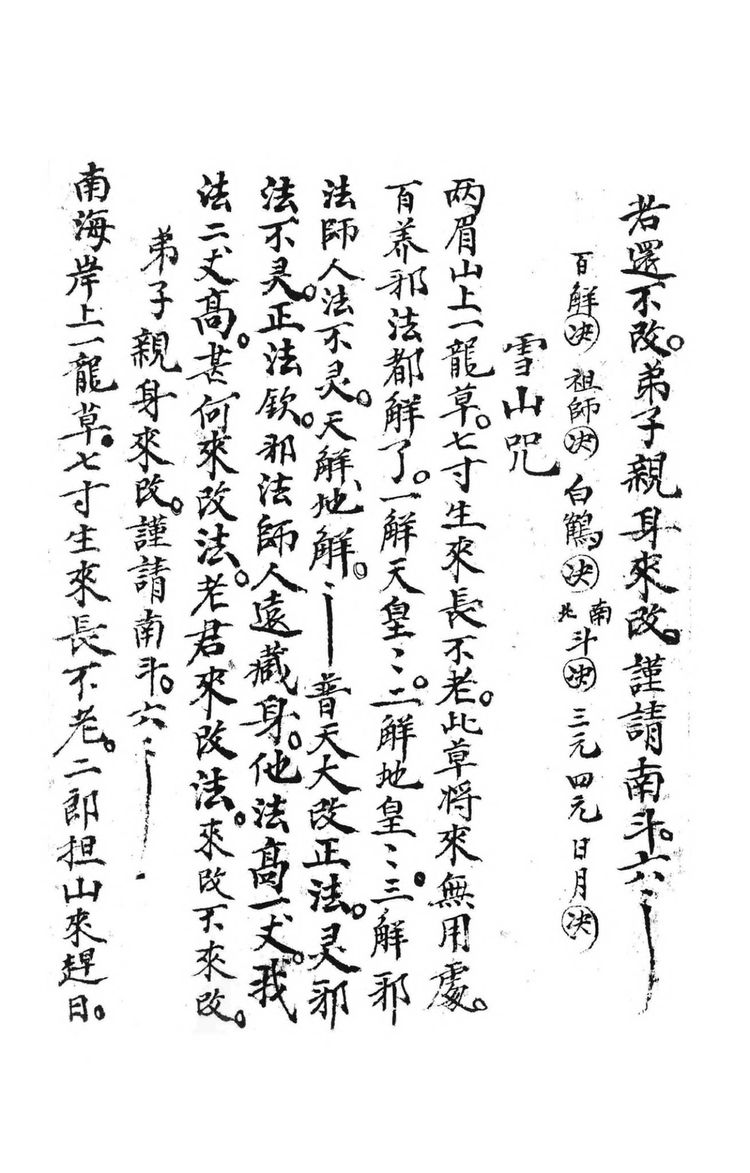 若還不改。弟子親身來改。謹請南斗。六〻
百解決 祖師決 白鶴決 南北斗決 三元四元日月決
雪山咒
两眉山上一龍草。七寸生來長不老。此草將來無用處。
百养邪法都解了。一解天皇〻。二解地皇〻。三解邪
法師人法不灵。天解地解。〻普天大改正法。灵邪
法不灵。正法欽。邪法師人遠藏身。他法高一丈。我
法二丈高。甚何來改法。老君來改法。來改不來改。
弟子親身來改。謹請南斗。六〻
南海岸上一龍草。七寸生來長不老。二郎担山來趕日。